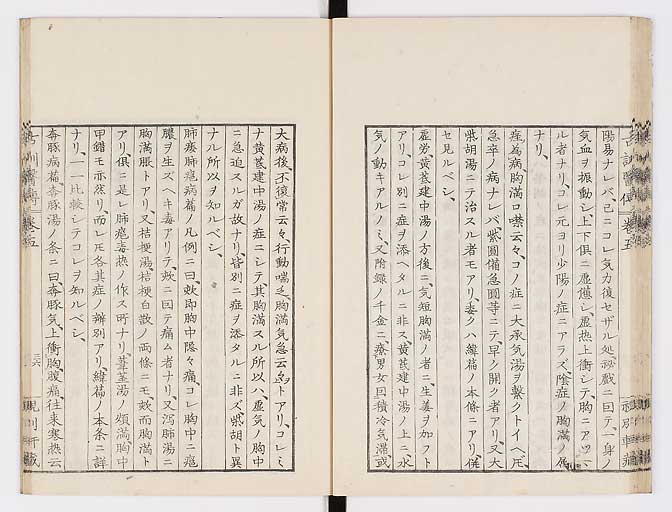 陽易ナレバ、已ニコレ気力復セザル処、秘戯ニ因テ、一身ノ
気血ヲ振動シ、上下倶ニ虚憊シ、虚熱上衝シテ、胸ニアツマ
ル者ナリ、コレ元ヨリ少陽ノ症ニアラズ、陰症ノ胸満ノ属
ナリ、
痙為病胸満口噤云々、コノ症ニ大承気湯ヲ繋クトイヘ𪜈、
急卒ノ病ナレバ、紫圓備急圓等ニテ、早ク開ク者アリ、又大
柴胡湯ニテ治スル者モアリ、委クハ緯篇ノ本條ニアリ、併
セ見ルベシ、
虚労黄蓍建中湯ノ方後ニ、気短胸満ノ者ニ、生姜ヲ加フト
アリ、コレ別ニ症ヲ添ヘタルニ非ス、黄蓍建中湯ノ上ニ、水
気ノ動キアルノミ、又附録ノ千金ニ、療男女因積冷気滞或
大病後、不復常云々、行動喘乏、胸満気急云々トアリ、コレミ
ナ黄蓍建中湯ノ症ニシテ、其胸満スル所以ハ、虚気ノ胸中
ニ急迫スルガ故ナリ、皆別ニ症ヲ添タルニ非ズ、柴胡ト異
ナル所以ヲ知ルベシ、
肺痿肺癰病篇ノ凡例ニ曰、欬即胸中隠々痛、コレ胸中ニ癰
膿ヲ生ズヘキ毒アリテ、欬ニ因テ痛ム者ナリ、又瀉肺湯ニ
胸満脹トアリ、又桔梗湯、桔梗白散ノ両條ニモ、欬而胸満ト
アリ、倶ニ是レ肺癰毒熱ノ作ス所ナリ、葦茎湯ノ煩満、胸中
甲錯モ亦然リ、而レ𪜈各其症ノ辨別アリ、緯篇ノ本条ニ詳
ナリ、一一比較シテコレヲ知ルベシ、
奔豚病篇、奔豚湯ノ条ニ曰、奔豚気上衝胸、腹痛、往来寒熱云